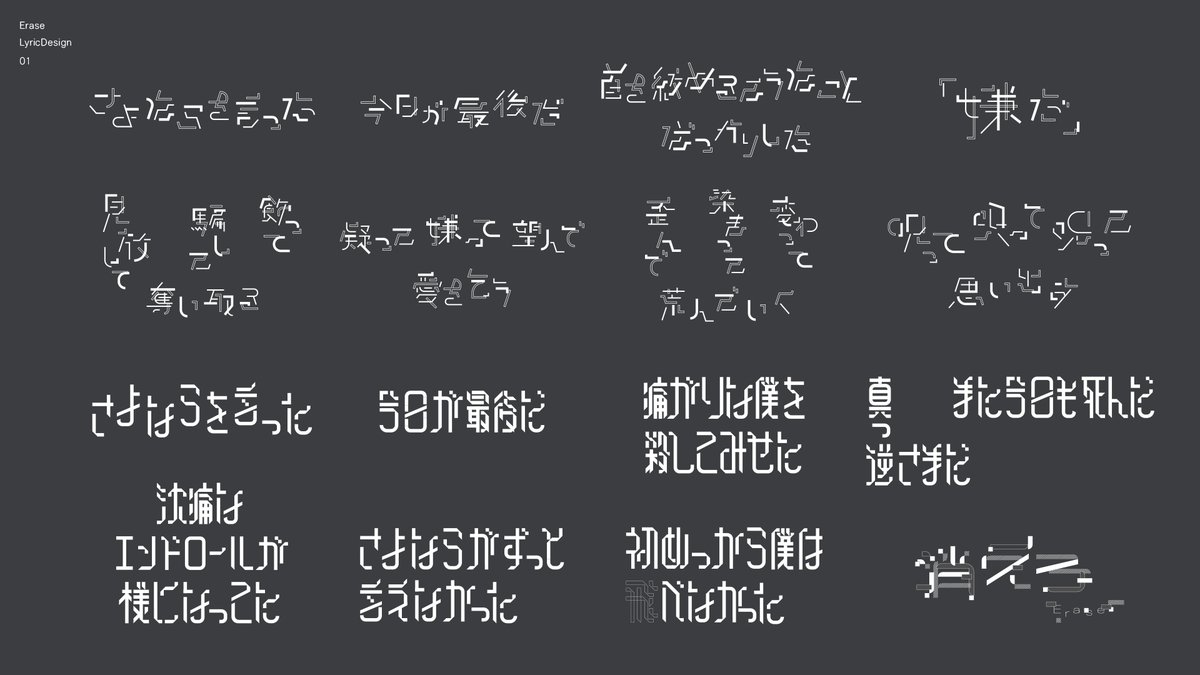 Erase
LyricDesign
01
さよならを言った
今日が最後だ
首を絞めるようなこと
ばっかりした
「嫌だ」
見放して
騙して
飲って
奪い取る
疑って 嫌って 望んで
愛を乞う
歪んで
染まって
変わって
荒んでいく
呪って
思い出す
さよならを言った
今日が最後だ
痛がりな僕を
殺してみせた
真っ
逆さまだ
また今日も死んだ
沈痛な
エンドロールが
様になってた
さよならがずっと
言えなかった
初めっから僕は
飛べなかった
消えろ
Erase